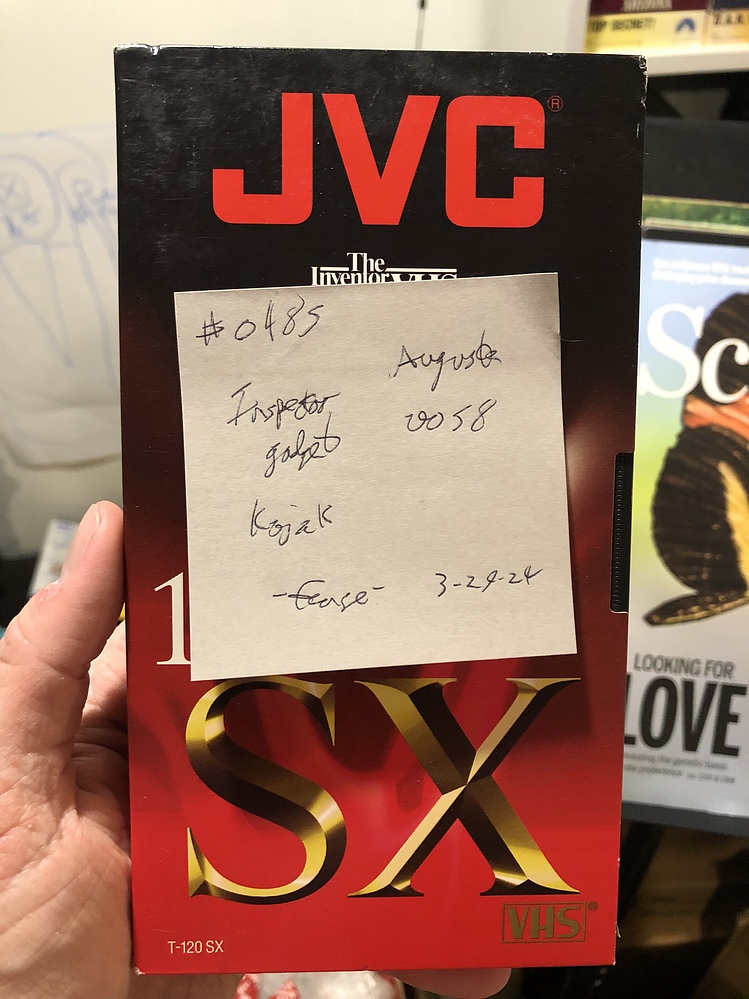 TOP SECRET!
JVC®
The
Inventor
VHS
#0485
August
0058
Inspector
gadget
Kojak
3-29-24
1
SX
VHS®
T-120 SX
Sc
LOOKING FOR
LOVE